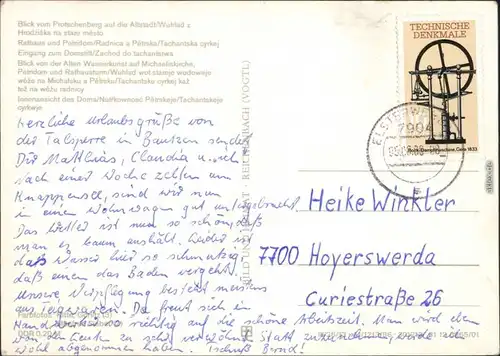 Blick vom Protschenberg auf die Altstadt/Wuhlad z
Hrodźiška na stare město
Rathaus und Petridom/Radnica a Pětrska/Tachantska cyrkej
Eingang zum Domstift/Zachod do tachantstwa
Blick von der Alten Wasserkunst auf Michaeliskirche,
Petridom und Rathausturm/Wuhlad wot stareje wodoweje
wěže na Michałsku a Pětrsku/Tachantsku cyrkej kaž
tež na wěžu radnicy
Innenansicht des Doms/Nutřkownosć Pětrskeje/Tachantskeje
cyrkwje
TECHNISCHE
DENKMALE
DDR
1833
ELSTERWERDA
7904
Herzliche Urlaubsgrüße von
der Talsperre in Bautzen senden
Dir Matthias, Claudia u. ich.
Nach einer Woche zelten am
Knappensee, sind wir nun
in einem Wohnwagen gut untergebracht.
Das Wetter ist nun so schön, daß
man es kaum aushält. Leider ist
das Wasser hier so schmutzig,
daß einem das Baden vergeht.
Unsere Verpflegung besteht meistens
aus Teigwaren. Da freut sich
richtig auf die schöne Arbeitszeit. Man wird eben
von den Leuten zu sehr verwöhnt. Statt
wohl abgenommen haben. Tschüß Bernd!
Heike Winkler
7700 Hoyerswerda
Curiestraße 26
BILD UND HEIMAT REICHENBACH (VOGTL)
Farbfotos